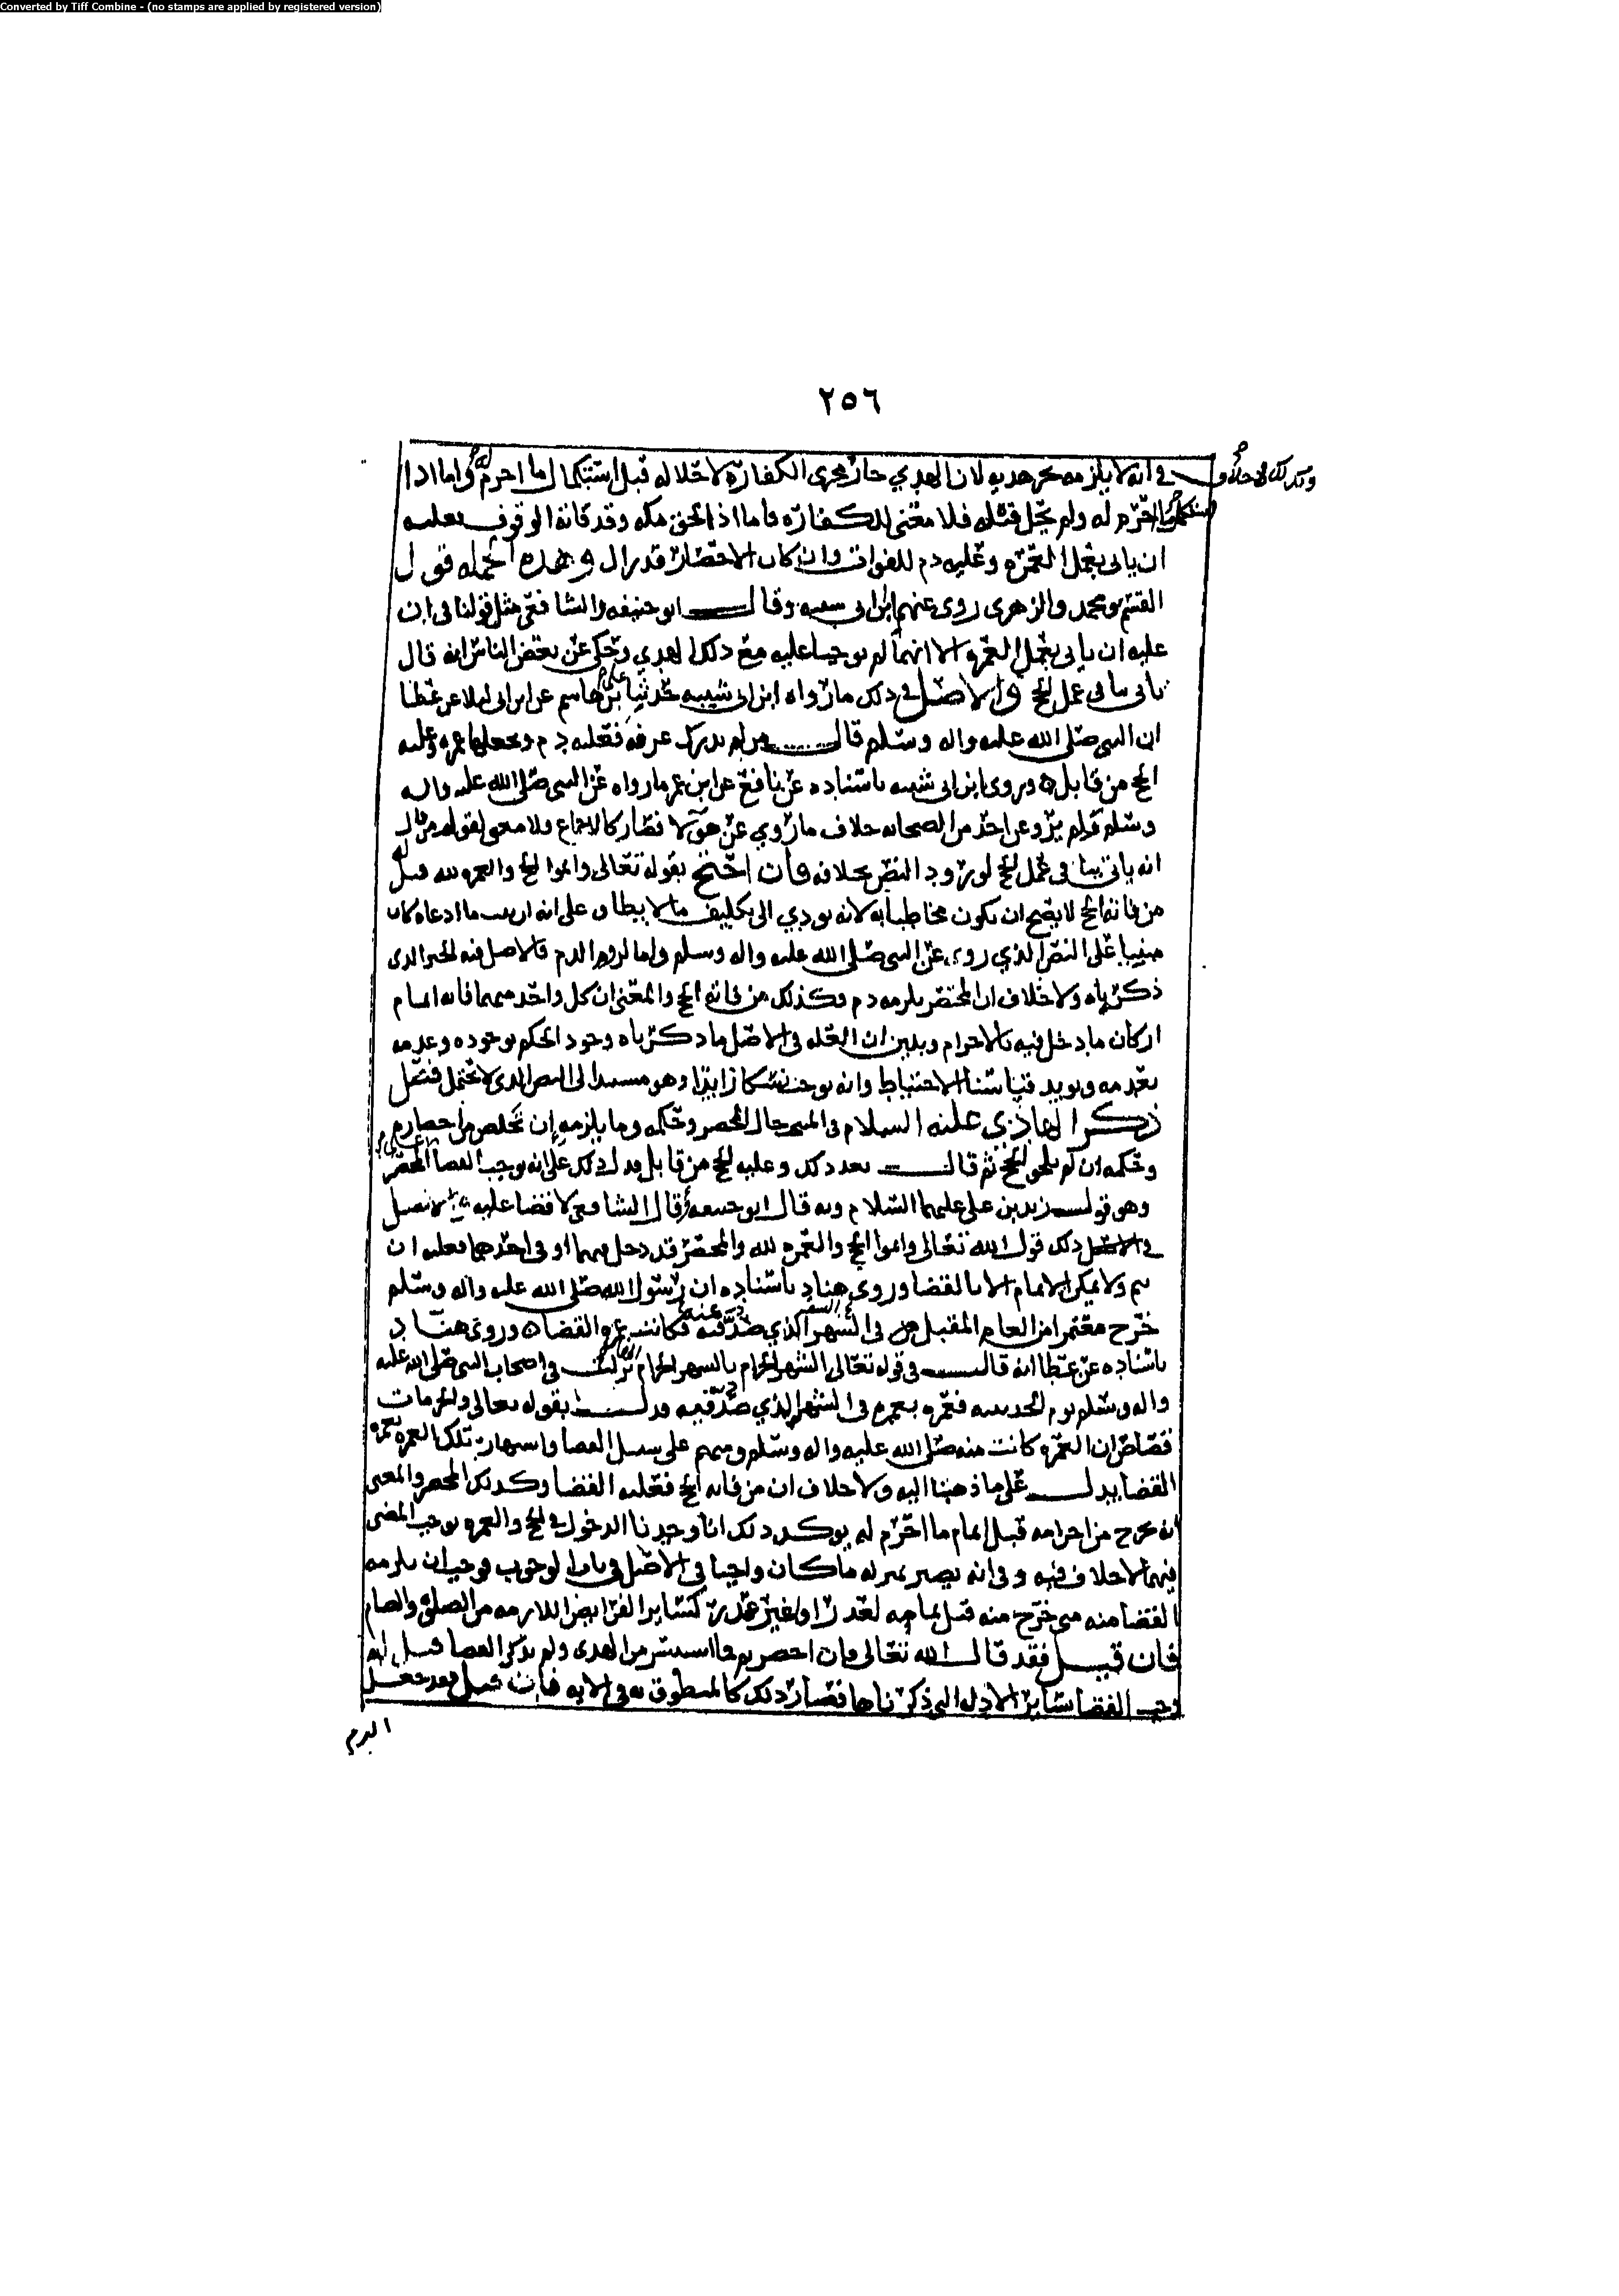 Converted by Tiff Combine - (no stamps are applied by registered version)
٢٥٦
وكذلك لا خلاف
في انه لا يلزمه نحر هديه لان الهدي جار مجرى الكفارة لاحلاله قبل استكمال ما احرم له واما اذا
احرم له ولم يحل قبله فلا معنى للكفاره فاما اذا لحق مكه وقد فاته الوقوف فعليه
ان ياتي بعمل العمره وعليه دم للفوات وان كان الاحصار قد زال وبهذه الجمله قول
القسم بن محمد والزهرى روى عنهم ابن ابي شيبه وقال ابو حنيفه والشافعي مثل قولنا في ان
عليه ان ياتي بعمل العمره الا انهما لم يوجبا عليه مع ذلك الهدي وحكي عن بعض الناس انه قال
ياتي بباقي عمل الحج والاصل في ذلك ما رواه ابن ابي شيبه حدثنا علي بن هاشم عن ابن ابي ليلا عن عطا
ان النبي صلى الله عليه واله وسلم قال من لم يدرك عرفه فعليه دم ويجعلها عمره وعليه
الحج من قابل ه وروى ابن ابي شيبه باسناده عن نافع عن ابن عمر ما رواه عن النبي صلى الله عليه واله
وسلم ولم يرو عن احد من الصحابه خلاف ما روي عن هؤلا فصار كالاجماع ولا معنى لقول من قال
انه ياتي بباقي عمل الحج لورود النص بخلافه فان احتج بقوله تعالى واتموا الحج والعمره لله قيل له
من فاته الحج لا يصح ان يكون مخاطبا به لانه يودي الى تكليف ما لا يطاق على انه لو ثبت ما ادعاه كان
مبنيا على النص الذي روي عن النبي صلى الله عليه واله وسلم واما لزوم الدم فالاصل فيه الخبر الذي
ذكرناه ولا خلاف ان المحصر يلزمه دم وكذلك من فاته الحج والمعنى ان كل واحد منهما فاته اتمام
اركان ما دخل فيه بالاحرام ويبين ان العله في الاصل ما ذكرناه وجود الحكم بوجوده وعدمه
بعدمه ويويد قياسنا الاحتياط وانه يوجب نسكا زايدا وهو مستند الى النص الذي لا يحتمل فصل
ذكر الهادي عليه السلام في حال المحصر وحكمه وما يلزمه ان تخلص من احصاره
وحكمه ان لم يلحق الحج ثم قال بعد ذلك وعليه الحج من قابل فدل ذلك على انه يوجب القضا على المحصر
وهو قول زيد بن علي عليهما السلام وبه قال ابو حنيفه وقال الشافعي لا قضا عليه
والاصل في ذلك قول الله تعالى واتموا الحج والعمره لله والمحصر قد دخل فيهما او في احدهما فعليه ان
يتم ولا يمكن الاتمام الا بالقضا وروى هناد باسناده ان رسول الله صلى الله عليه واله وسلم
خرج معتمرا من العام المقبل في الشهر الذي صد فيه فكانت عمره القضا ه وروى هناد
باسناده عن عطا انه قال في قوله تعالى الشهر الحرام بالشهر الحرام نزلت في اصحاب النبي صلى الله عليه
واله وسلم يوم الحديبيه فعمره بعمره في الشهر الذي صد فيه ودل بقوله تعالى والحرمات
قصاص ان العمره كانت منه صلى الله عليه واله وسلم ومنهم على سبيل القضا واشتهار تلك العمره بعمره
القضا يدل على ما ذهبنا اليه ولا خلاف ان من فاته الحج فعليه القضا وكذلك المحصر والمعنى
انه خرج من احرامه قبل اتمام ما احرم له يوكد ذلك انا وجدنا الدخول في الحج والعمره يوجب المضي
فيهما لا خلاف فيه وفي انه يصير بمنزله ما كان واجبا في الاصل في باب الوجوب فوجب ان يلزمه
القضا منه متى خرج منه قبل تمامه لعذر او لغير عذر كساير الفرايض اللازمه من الصلوة والصيام
فان قيل فقد قال الله تعالى فان احصرتم فما استيسر من الهدى ولم يذكر القضا قيل له
وجب القضا بساير الادله التي ذكرناها فصار ذلك كالمنطوق به في الايه فان قيل فقد جعل
الدم